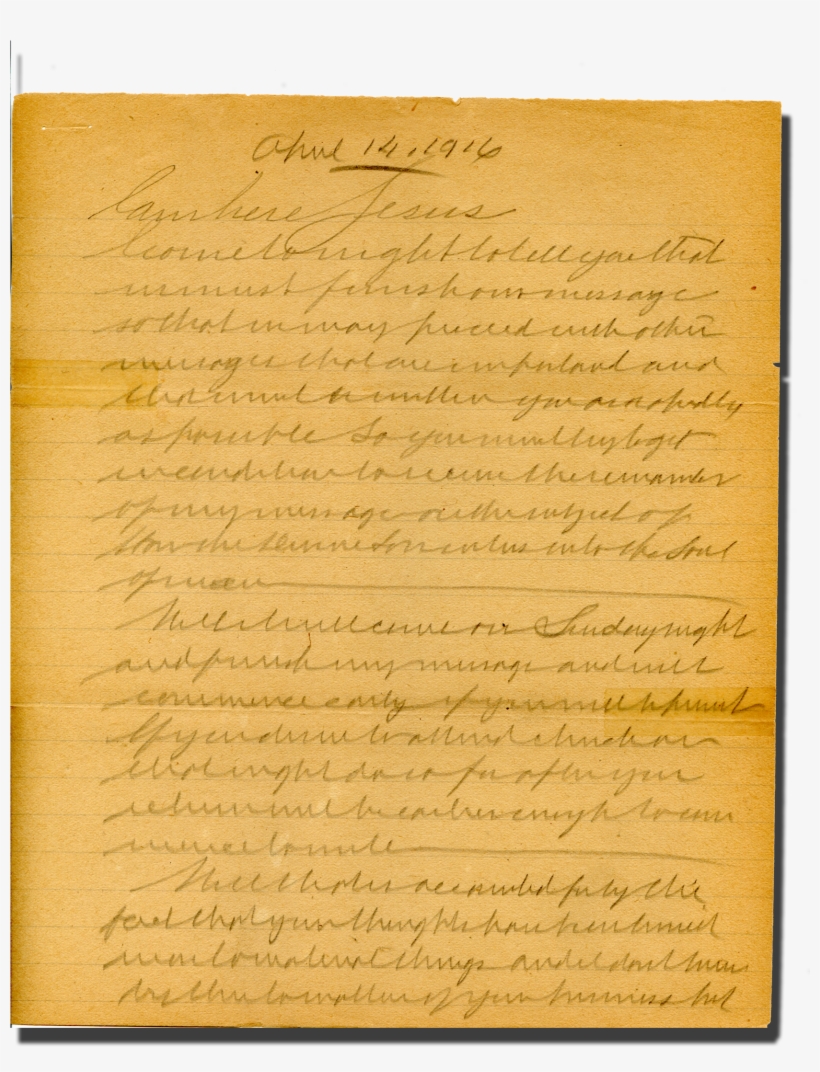 April 14, 1916
I am here Jesus
I come to night to tell you that
we must finish our message
so that we may proceed with other
messages that are important and
that must be written you as rapidly
as possible So you must try to get
in condition to receive the remainder
of my message on the subject of
How the Divine Love enters into the Soul
of man
Well I will come on Sunday night
and finish my message and will
commence early if you will be present
If you desire to attend church on
that night do so for after your
return will be early enough to com
mence to write
Well that is accounted for by the
fact that your thoughts have been turned
more to material things and I don't mean
by this to matters of your business but